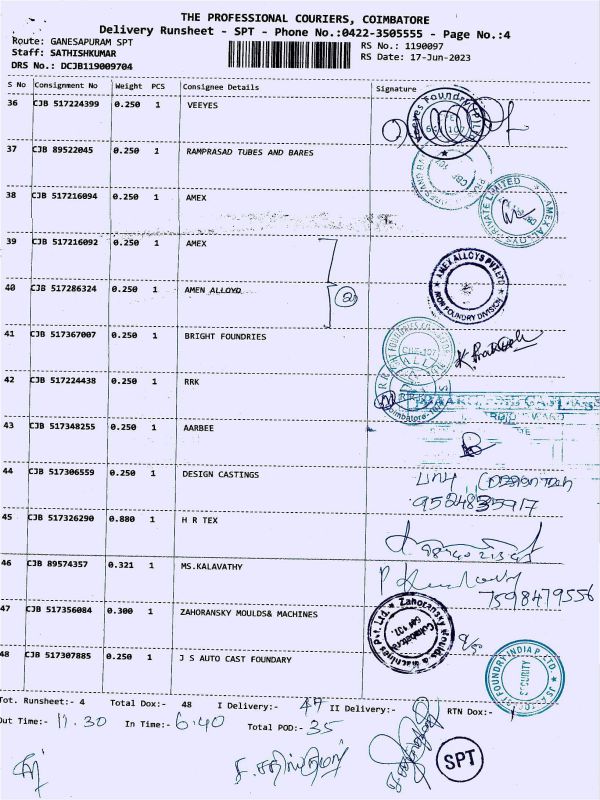 THE PROFESSIONAL COURIERS, COIMBATORE
Delivery Runsheet - SPT - Phone No.:0422-3505555 - Page No.:4
Route: GANESAPURAM SPT
RS No.: 1190097
Staff: SATHISHKUMAR
RS Date: 17-Jun-2023
DRS No.: DCJB119009704
S No Consignment No Weight PCS Consignee Details Signature
36 CJB 517224399 0.250 1 VEEYES
37 CJB 89522045 0.250 1 RAMPRASAD TUBES AND BARES
38 CJB 517216094 0.250 1 AMEX
AMEX ALLOYS PRIVATE LIMITED
39 CJB 517216092 0.250 1 AMEX
AMEX ALLOYS PVT LTD
IRON FOUNDRY DIVISION
40 CJB 517286324 0.250 1 AMEN ALLOYD
2
41 CJB 517367007 0.250 1 BRIGHT FOUNDRIES
42 CJB 517224438 0.250 1 RRK
43 CJB 517348255 0.250 1 AARBEE
44 CJB 517306559 0.250 1 DESIGN CASTINGS
45 CJB 517326290 0.880 1 H R TEX
46 CJB 89574357 0.321 1 MS.KALAVATHY
7598479556
47 CJB 517356084 0.300 1 ZAHORANSKY MOULDS& MACHINES
Zahoransky Moulds & Machines Pvt. Ltd.
Coimbatore
48 CJB 517307885 0.250 1 J S AUTO CAST FOUNDARY
FOUNDRY INDIA P. LTD.
SECURITY
Tot. Runsheet:- 4 Total Dox:- 48 I Delivery:- 47 II Delivery:- RTN Dox:- 1
Out Time:- 11.30 In Time:- 6.40 Total POD:- 35
SPT